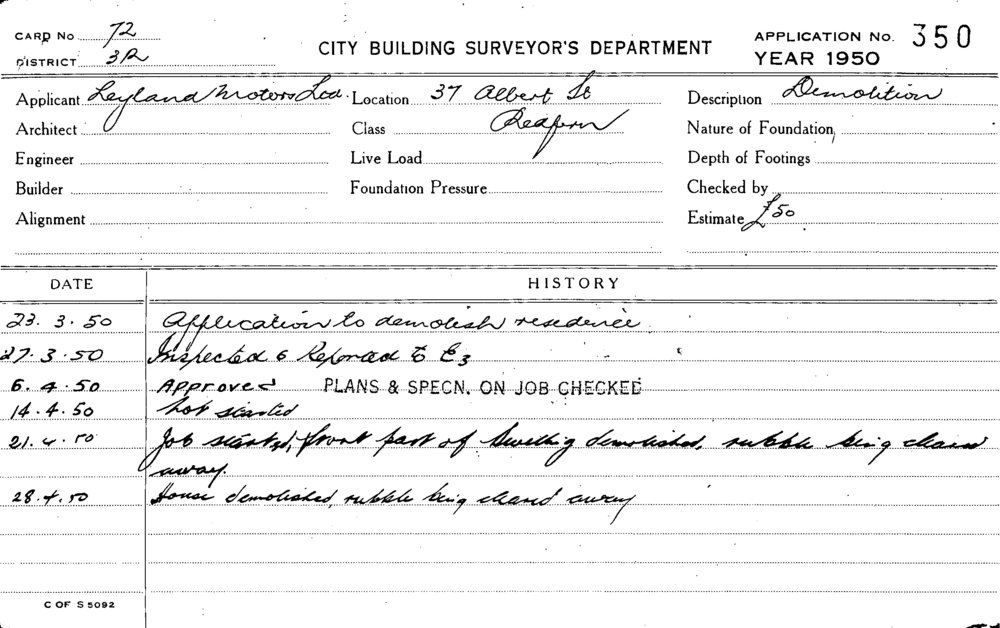 CARD No 72
DISTRICT 3R
CITY BUILDING SURVEYOR'S DEPARTMENT
APPLICATION No. 350
YEAR 1950
Applicant Leyland Motors Ltd. Location 37 Albert St Description Demolition
Architect Class Redfern Nature of Foundation
Engineer Live Load Depth of Footings
Builder Foundation Pressure Checked by
Alignment Estimate £50
DATE HISTORY
23.3.50 Application to demolish residence
27.3.50 Inspected & Reported to E3
6.4.50 Approved PLANS & SPECN. ON JOB CHECKED
14.4.50 Not started
21.4.50 Job started, front part of dwelling demolished, rubble being cleared
away.
28.4.50 House demolished, rubble being cleared away
C OF S 5092